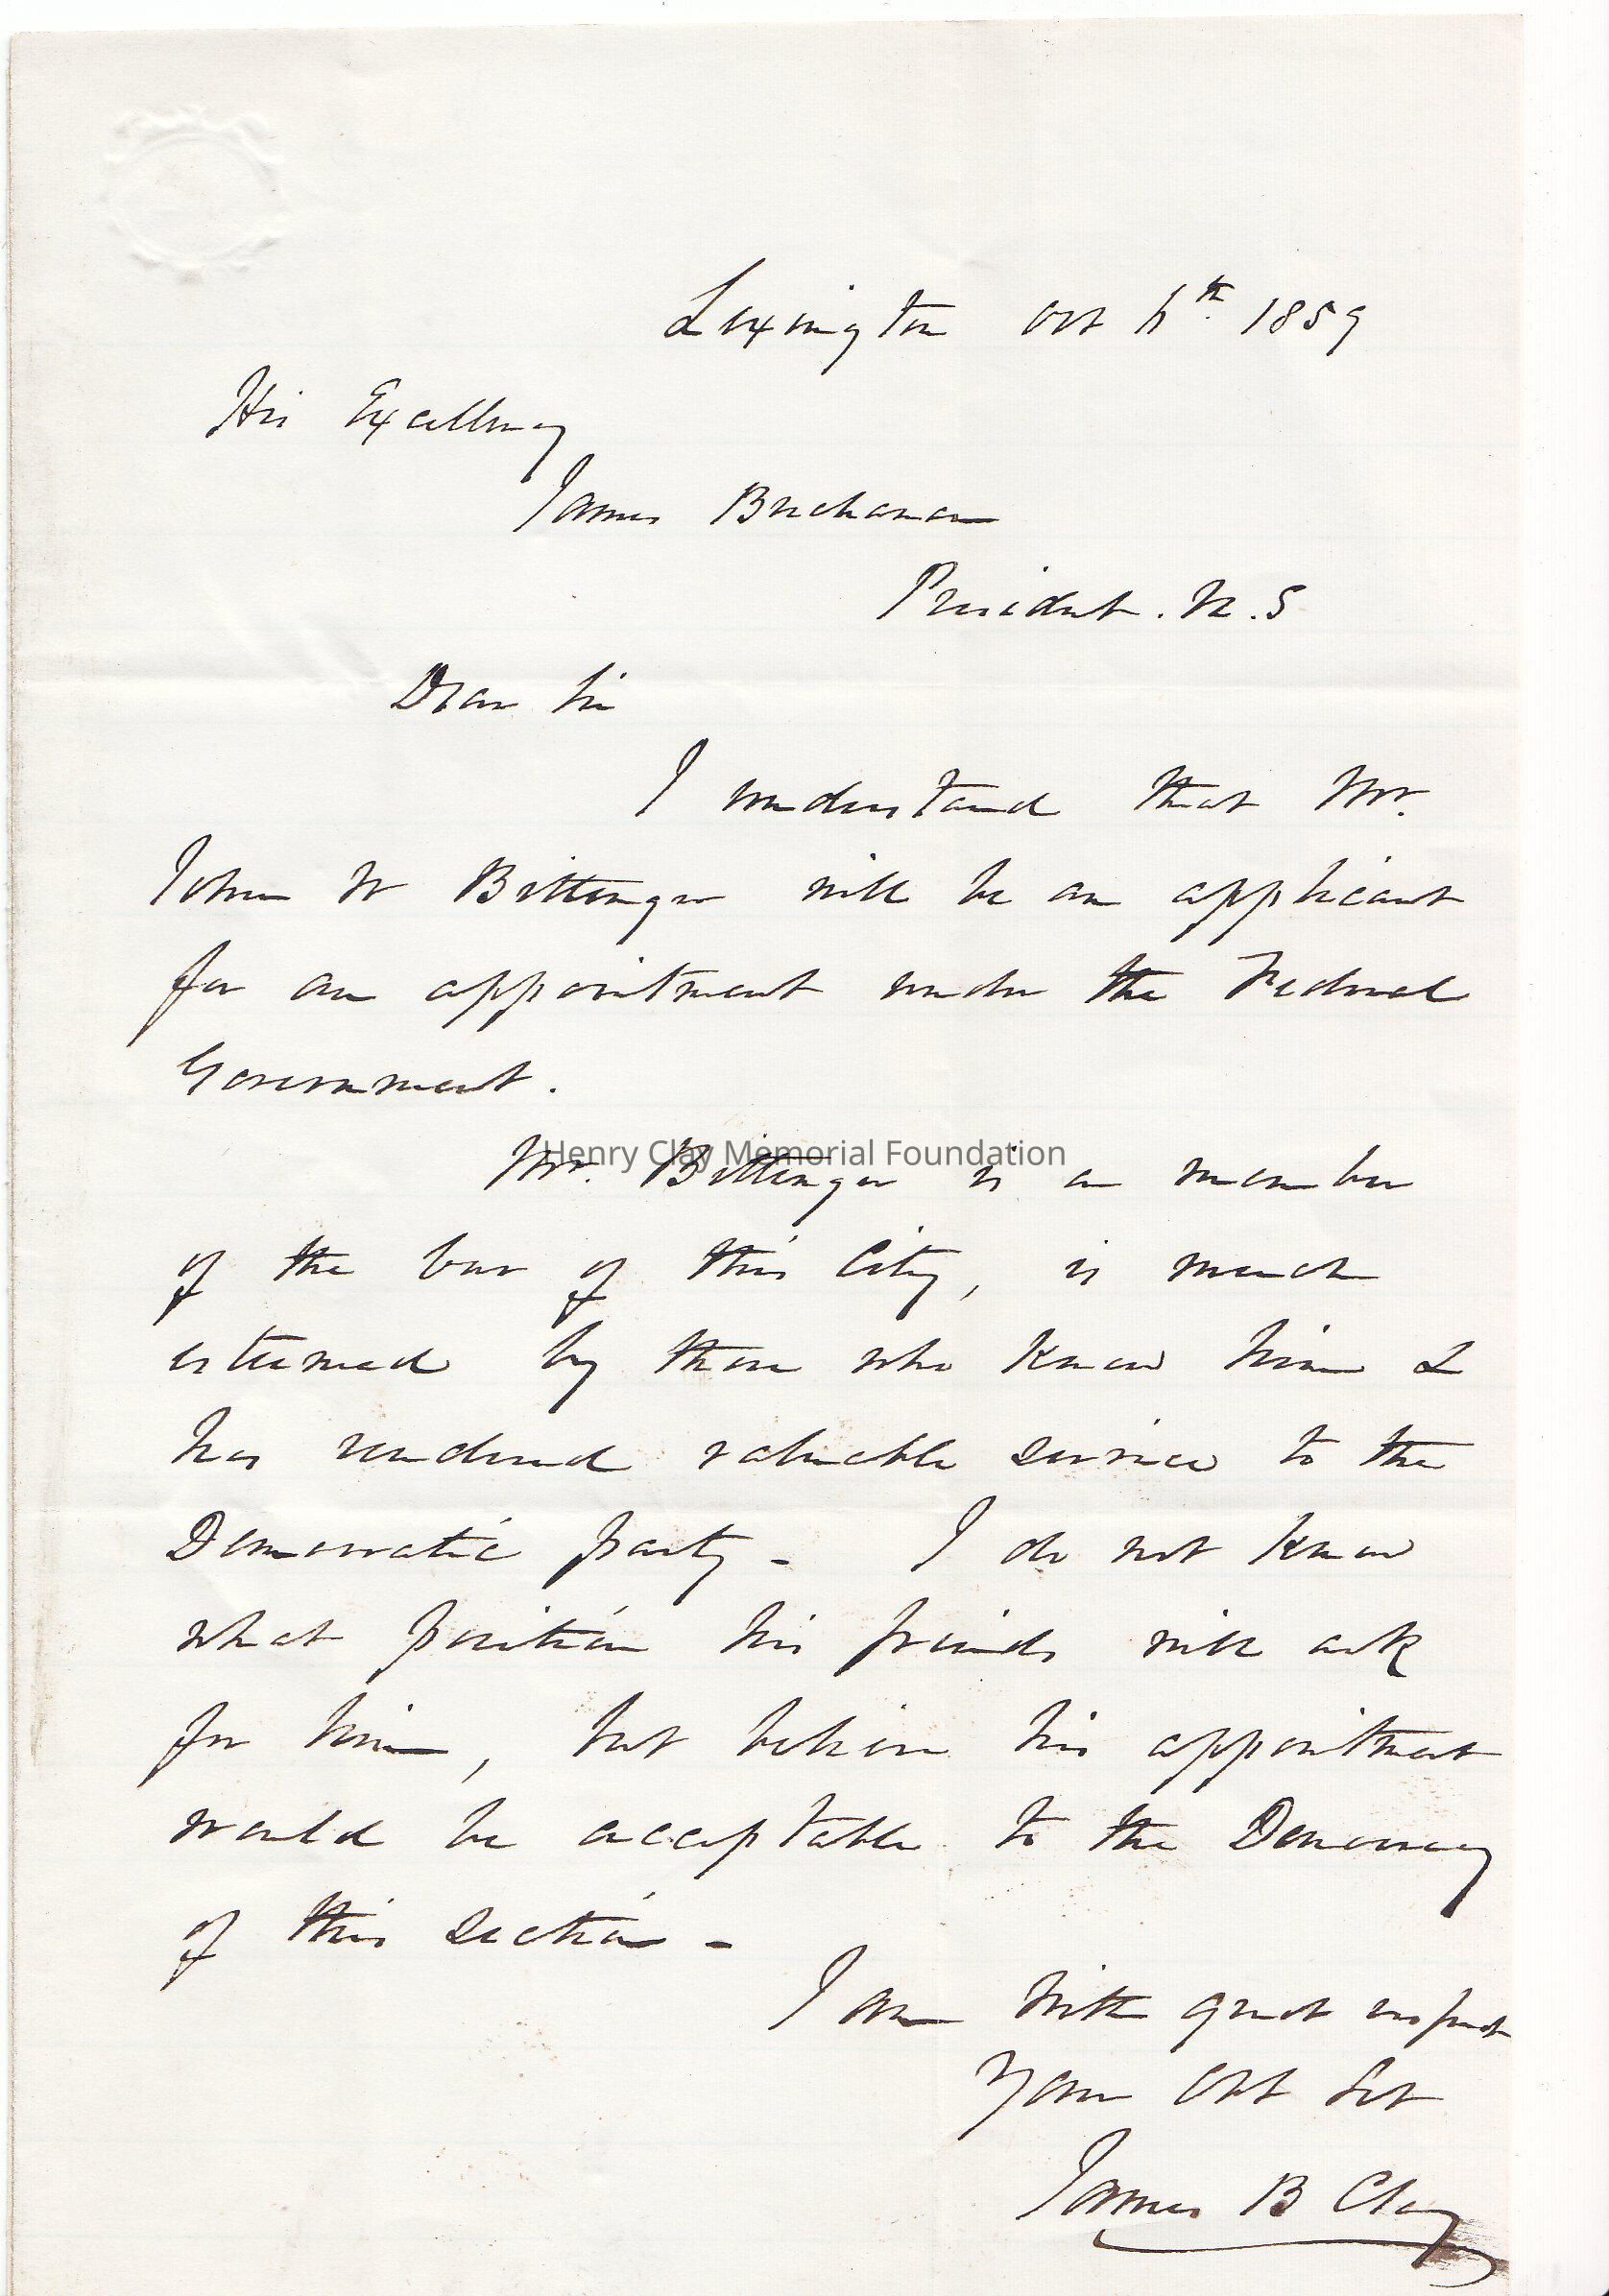 Lexington Oct 1859
His Excellency
James Buchanan
President. U. S
Dear Sir
I understand that Mr.
John W Bittenger will be an applicant
for an appointment under the Federal
Government.
Henry Clay Memorial Foundation
Mr. Bittenger is a member
of the bar of this City, is much
esteemed by those who know him &
has rendered valuable service to the
Democratic party - I do not know
what position his friends will ask
for him, but believe his appointment
would be acceptable to the Democracy
of this section -
I am with great respect
Your Obt Svt
James B Clay